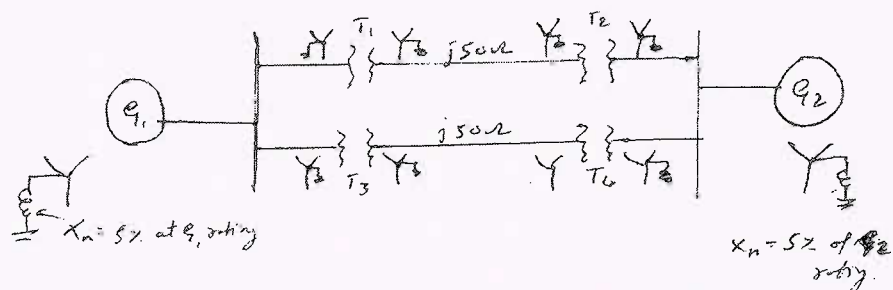 T1
T2
j50Ω
G1
G2
j50Ω
T3
T4
Xn = 5% at G1 rating
Xn = 5% of G2
rating.